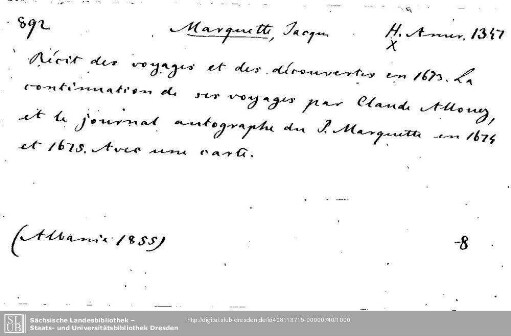 892 Marquette, Jacqu H. Amer. 1347
X
Récit des voyages et des découvertes en 1673. La
continuation de ses voyages par Claude Allouez,
et le journal autographe du P. Marquette en 1674
et 1675. Avec une carte.
(Albanie 1855) -8
Sächsische Landesbibliothek –
Staats- und Universitätsbibliothek Dresden